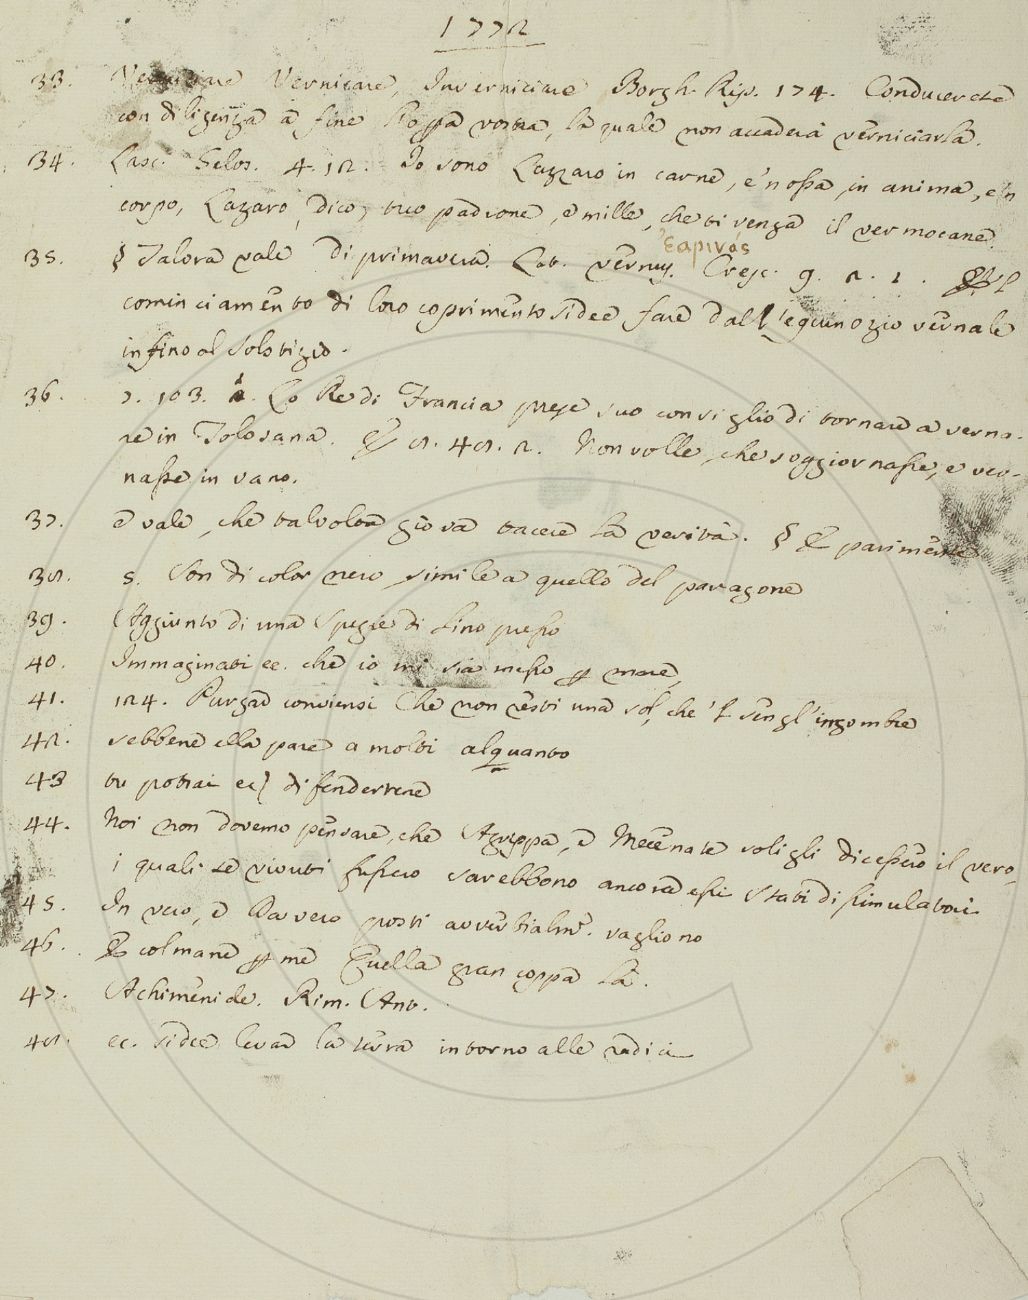 1772
33. Verniciare Vernicare, Inverniciare Borgh. Rip. 174. Conducerete
con diligenza a fine l'opa vostra, la quale non accaderà verniciarla.
34. Lasc. Gelos. 4. 12. Io sono Lazzaro in carne, e 'n ossa, in anima, e 'n
corpo, Lazaro, dico, tuo padrone, e mille, che ti venga il vermocane.
35. § Talora vale di primavera. Lat. vernus. ἐαρινός Cresc. 9. 2. 1.
cominciamento di loro coprimento si dee fare dall'equinozio vernale
infino al solstizio.
36. 7. 103. 1. Lo Re di Francia prese suo consiglio di tornare a verna-
re in Tolosana. E 8. 48. 2. Non volle, che soggiornasse, e ver-
nasse in vano.
37. e vale, che talvolta giova tacere la verità. § E parimente
38. s. Son di color nero simile a quello del paragone
39. Aggiunto di una Spezie di Lino presso
40. Immaginati ec. che io mi sia messo p mare,
41. 124. Purgar conviensi Che non resti una sol, che 'l sen gl'ingombre
42. sebbene ella pare a molti alquanto
43 tu potrai ec) difendertene
44. Noi non dovemo pensare, che Agrippa, e Mecenate soli gli dicessero il vero,
i quali se vivuti fussero sarebbono ancora essi stati dissimulatori
45. In vero, e Davvero posti avverbialm. vagliono
46. E colmane p me Quella gran coppa là.
47. Achimenide. Rim. Ant.
48. ec. si dee levar la terra intorno alle radici